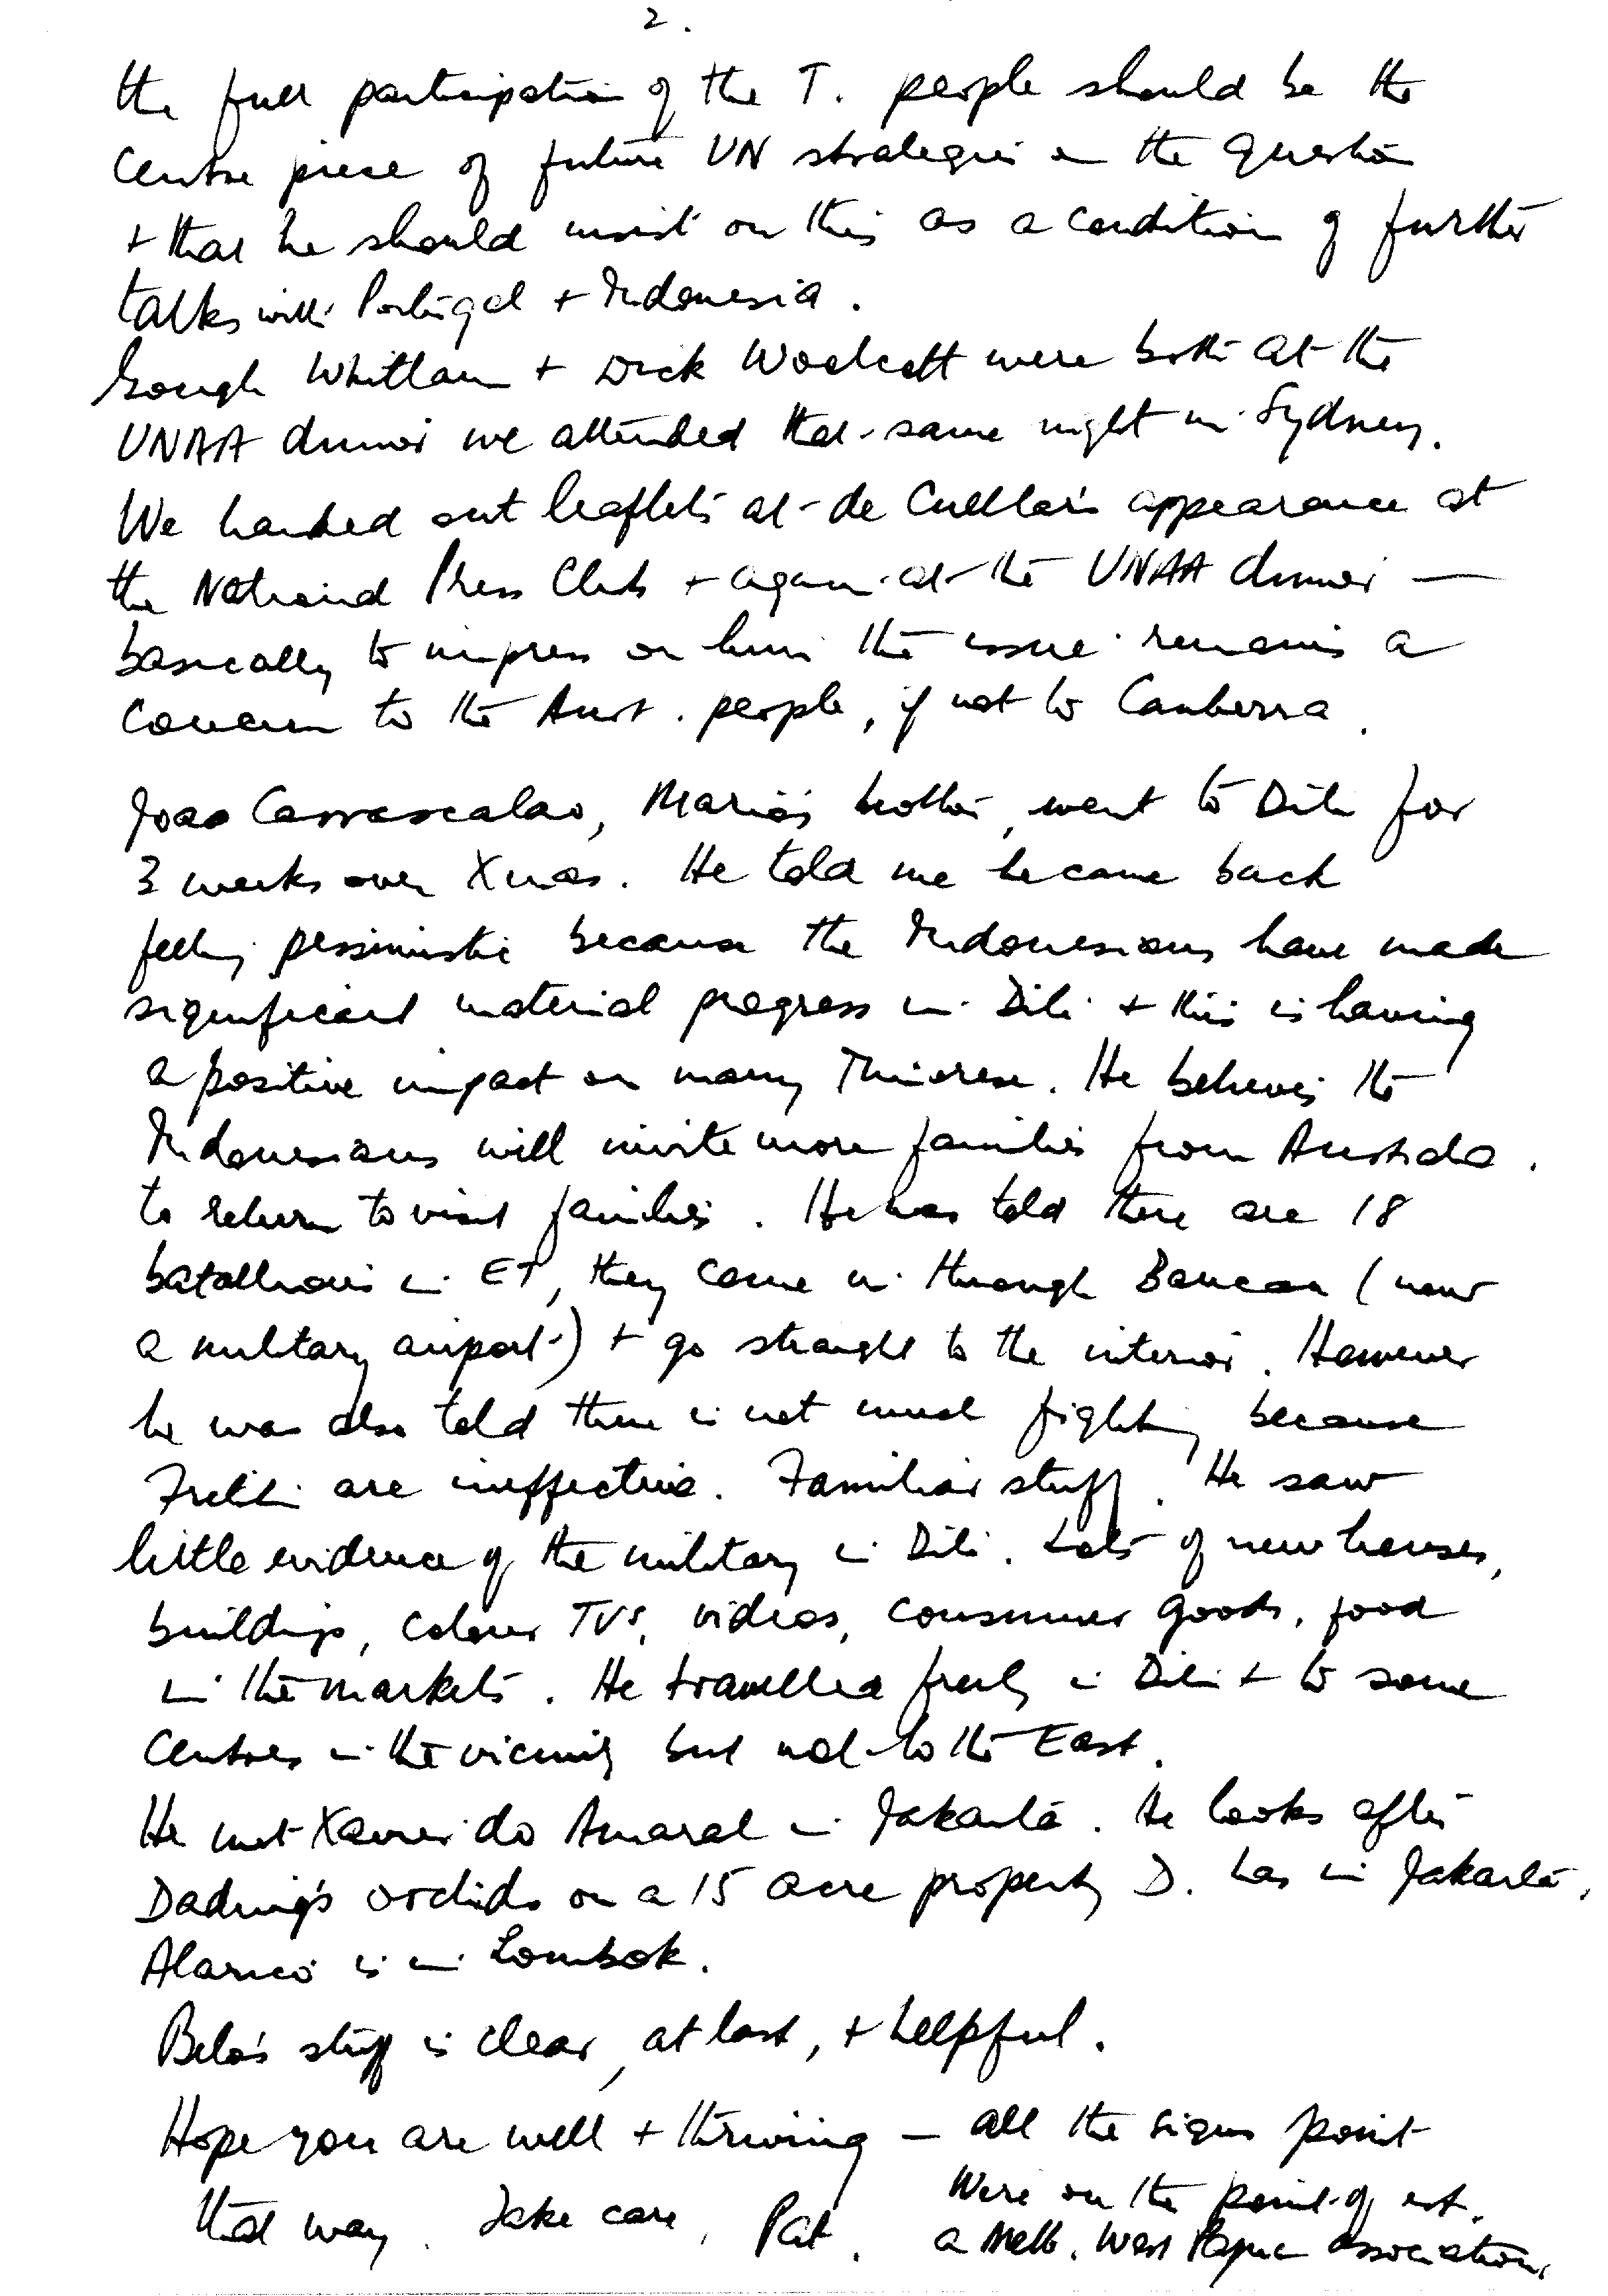 2.
the full participation of the T. people should be the
centre piece of future UN strategies on the question
+ that he should insist on this as a condition of further
talks with Portugal + Indonesia.
Gough Whitlam + Dick Woolcott were both at the
UNAA dinner we attended that same night in Sydney.
We handed out leaflets at de Cuellar's appearance at
the National Press Club + again at the UNAA dinner —
basically to impress on him the issue remains a
concern to the Aust. people, if not to Canberra.
Joao Carrascalao, Mario's brother, went to Dili for
3 weeks over Xmas. He told me he came back
feeling pessimistic because the Indonesians have made
significant material progress in Dili + this is having
a positive impact on many Timorese. He believes the
Indonesians will invite more families from Australia.
to return to visit families. He was told there are 18
batallions in ET, they come in through Baucau (now
a military airport) + go straight to the interior. However
he was also told there is not much fighting because
Fretilin are ineffective. Familiar stuff. He saw
little evidence of the military in Dili. Lots of new houses,
buildings, colour TVs, videos, consumer goods, food
in the markets. He travelled freely in Dili + to some
centres in the vicinity but not to the East.
He met Xavier do Amaral in Jakarta. He looks after
Dading's orchids on a 15 acre property D. has in Jakarta.
Alarico is in Lombok.
Belo's stuff is clear, at last, + helpful.
Hope you are well + thriving — all the signs point
that way. Take care, Pat.
We're on the point of est.
a Melb. West Papua association.